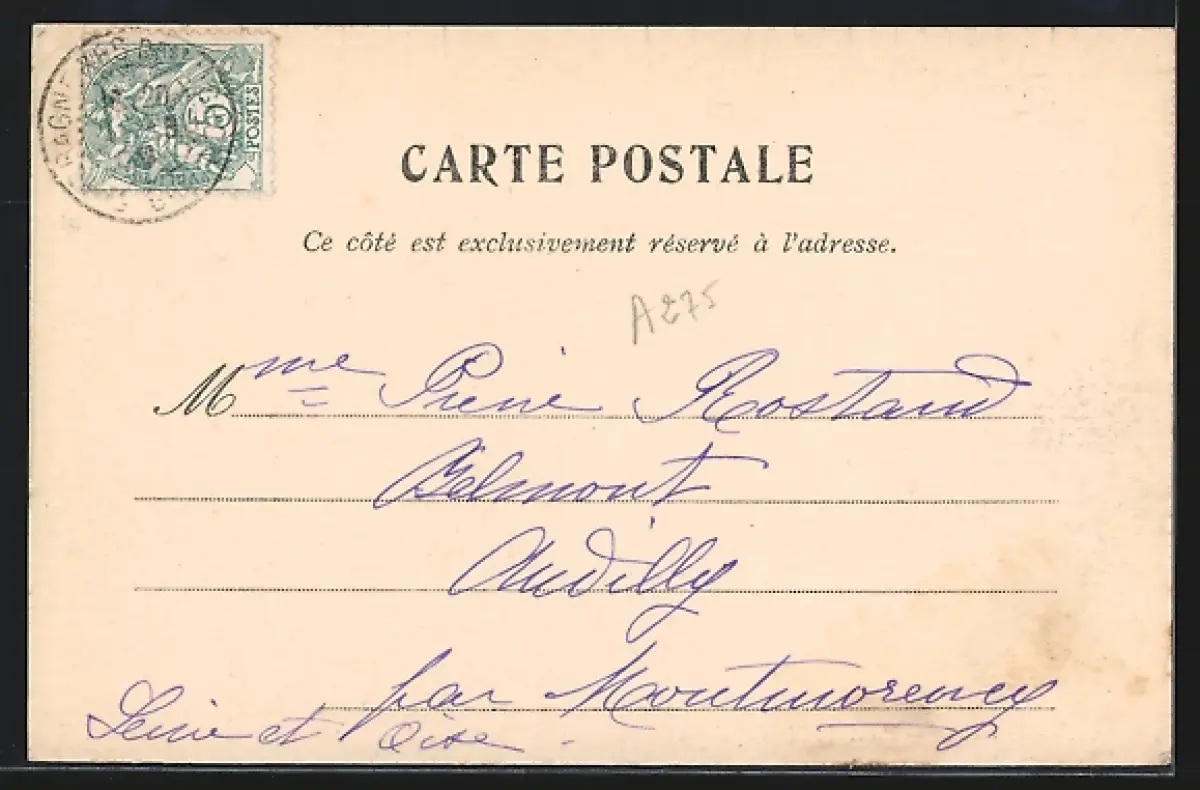 5
POSTES
CARTE POSTALE
Ce côté est exclusivement réservé à l'adresse.
A275
Mme Pierre Rostand
Belmont
Andilly
par Montmorency
Seine et Oise.